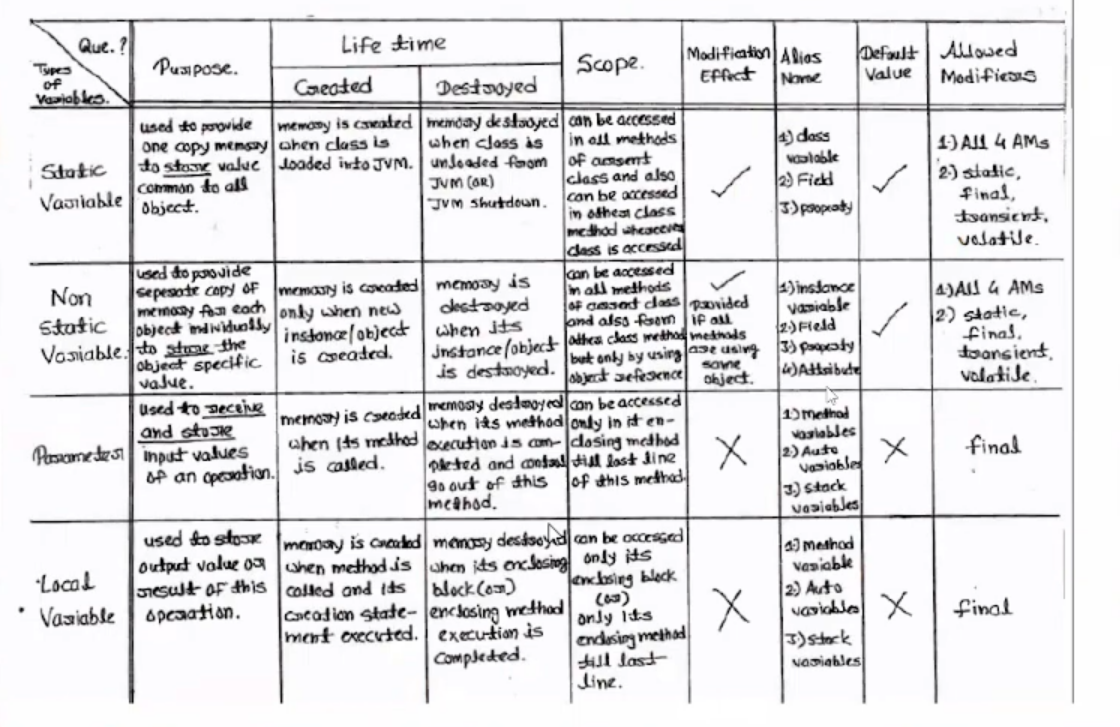 Que.?
Types
of
Variables.
Purpose.
Life time
Created
Destroyed
Scope.
Modification
Effect
Alias
Name
Default
Value
Allowed
Modifiers
Static
Variable
used to provide
one copy memory
to store value
common to all
object.
memory is created
when class is
loaded into JVM.
memory destroyed
when class is
unloaded from
JVM (OR)
JVM shutdown.
can be accessed
in all methods
of current
class and also
can be accessed
in other class
method wherever
class is accessed
✓
1) class
variable
2) Field
3) property
✓
1.) All 4 AMs
2.) static,
final,
transient,
volatile.
Non
Static
Variable.
used to provide
seperate copy of
memory for each
object individually
to store the
object specific
value.
memory is created
only when new
instance/object
is created.
memory is
destroyed
when its
instance/object
is destroyed.
can be accessed
in all methods
of current class
and also from
other class method
but only by using
object reference
✓
provided
if all
methods
are using
same
object.
1) instance
variable
2) Field
3) property
4) Attribute
✓
1.) All 4 AMs
2) static,
final,
transient,
volatile.
Parameter
used to receive
and store
input values
of an operation.
memory is created
when its method
is called.
memory destroyed
when its method
execution is com-
pleted and control
go out of this
method.
can be accessed
only in it en-
closing method
till last line
of this method.
X
1.) method
variables
2.) Auto
variables
3.) stack
variables
X
final
Local
Variable
used to store
output value or
result of this
operation.
memory is created
when method is
called and its
creation state-
ment executed.
memory destroyed
when its enclosing
block (or)
enclosing method
execution is
completed.
can be accessed
only its
enclosing block
(or)
only its
enclosing method
till last
line.
X
1.) method
variable
2) Auto
variables
3) stack
variables
X
final